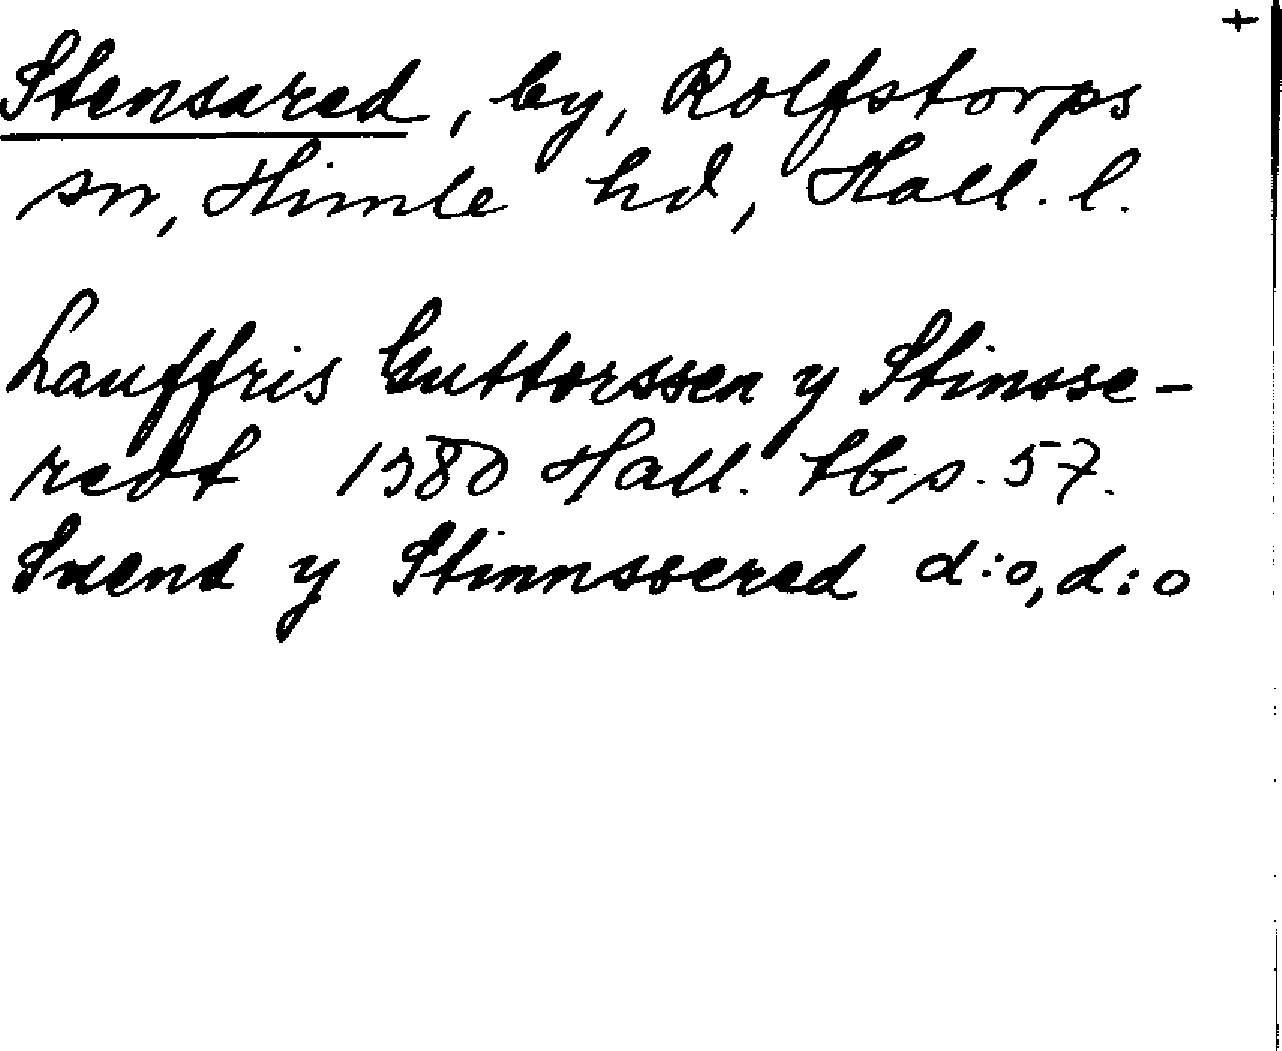 +
Stensared, by, Rolfstorps
sn, Himle hd, Hall. l.
Lauffris Guttorssen y Stinsse-
redt 1580 Hall. tb s. 57.
Suend y Stinnssered d:o, d:o